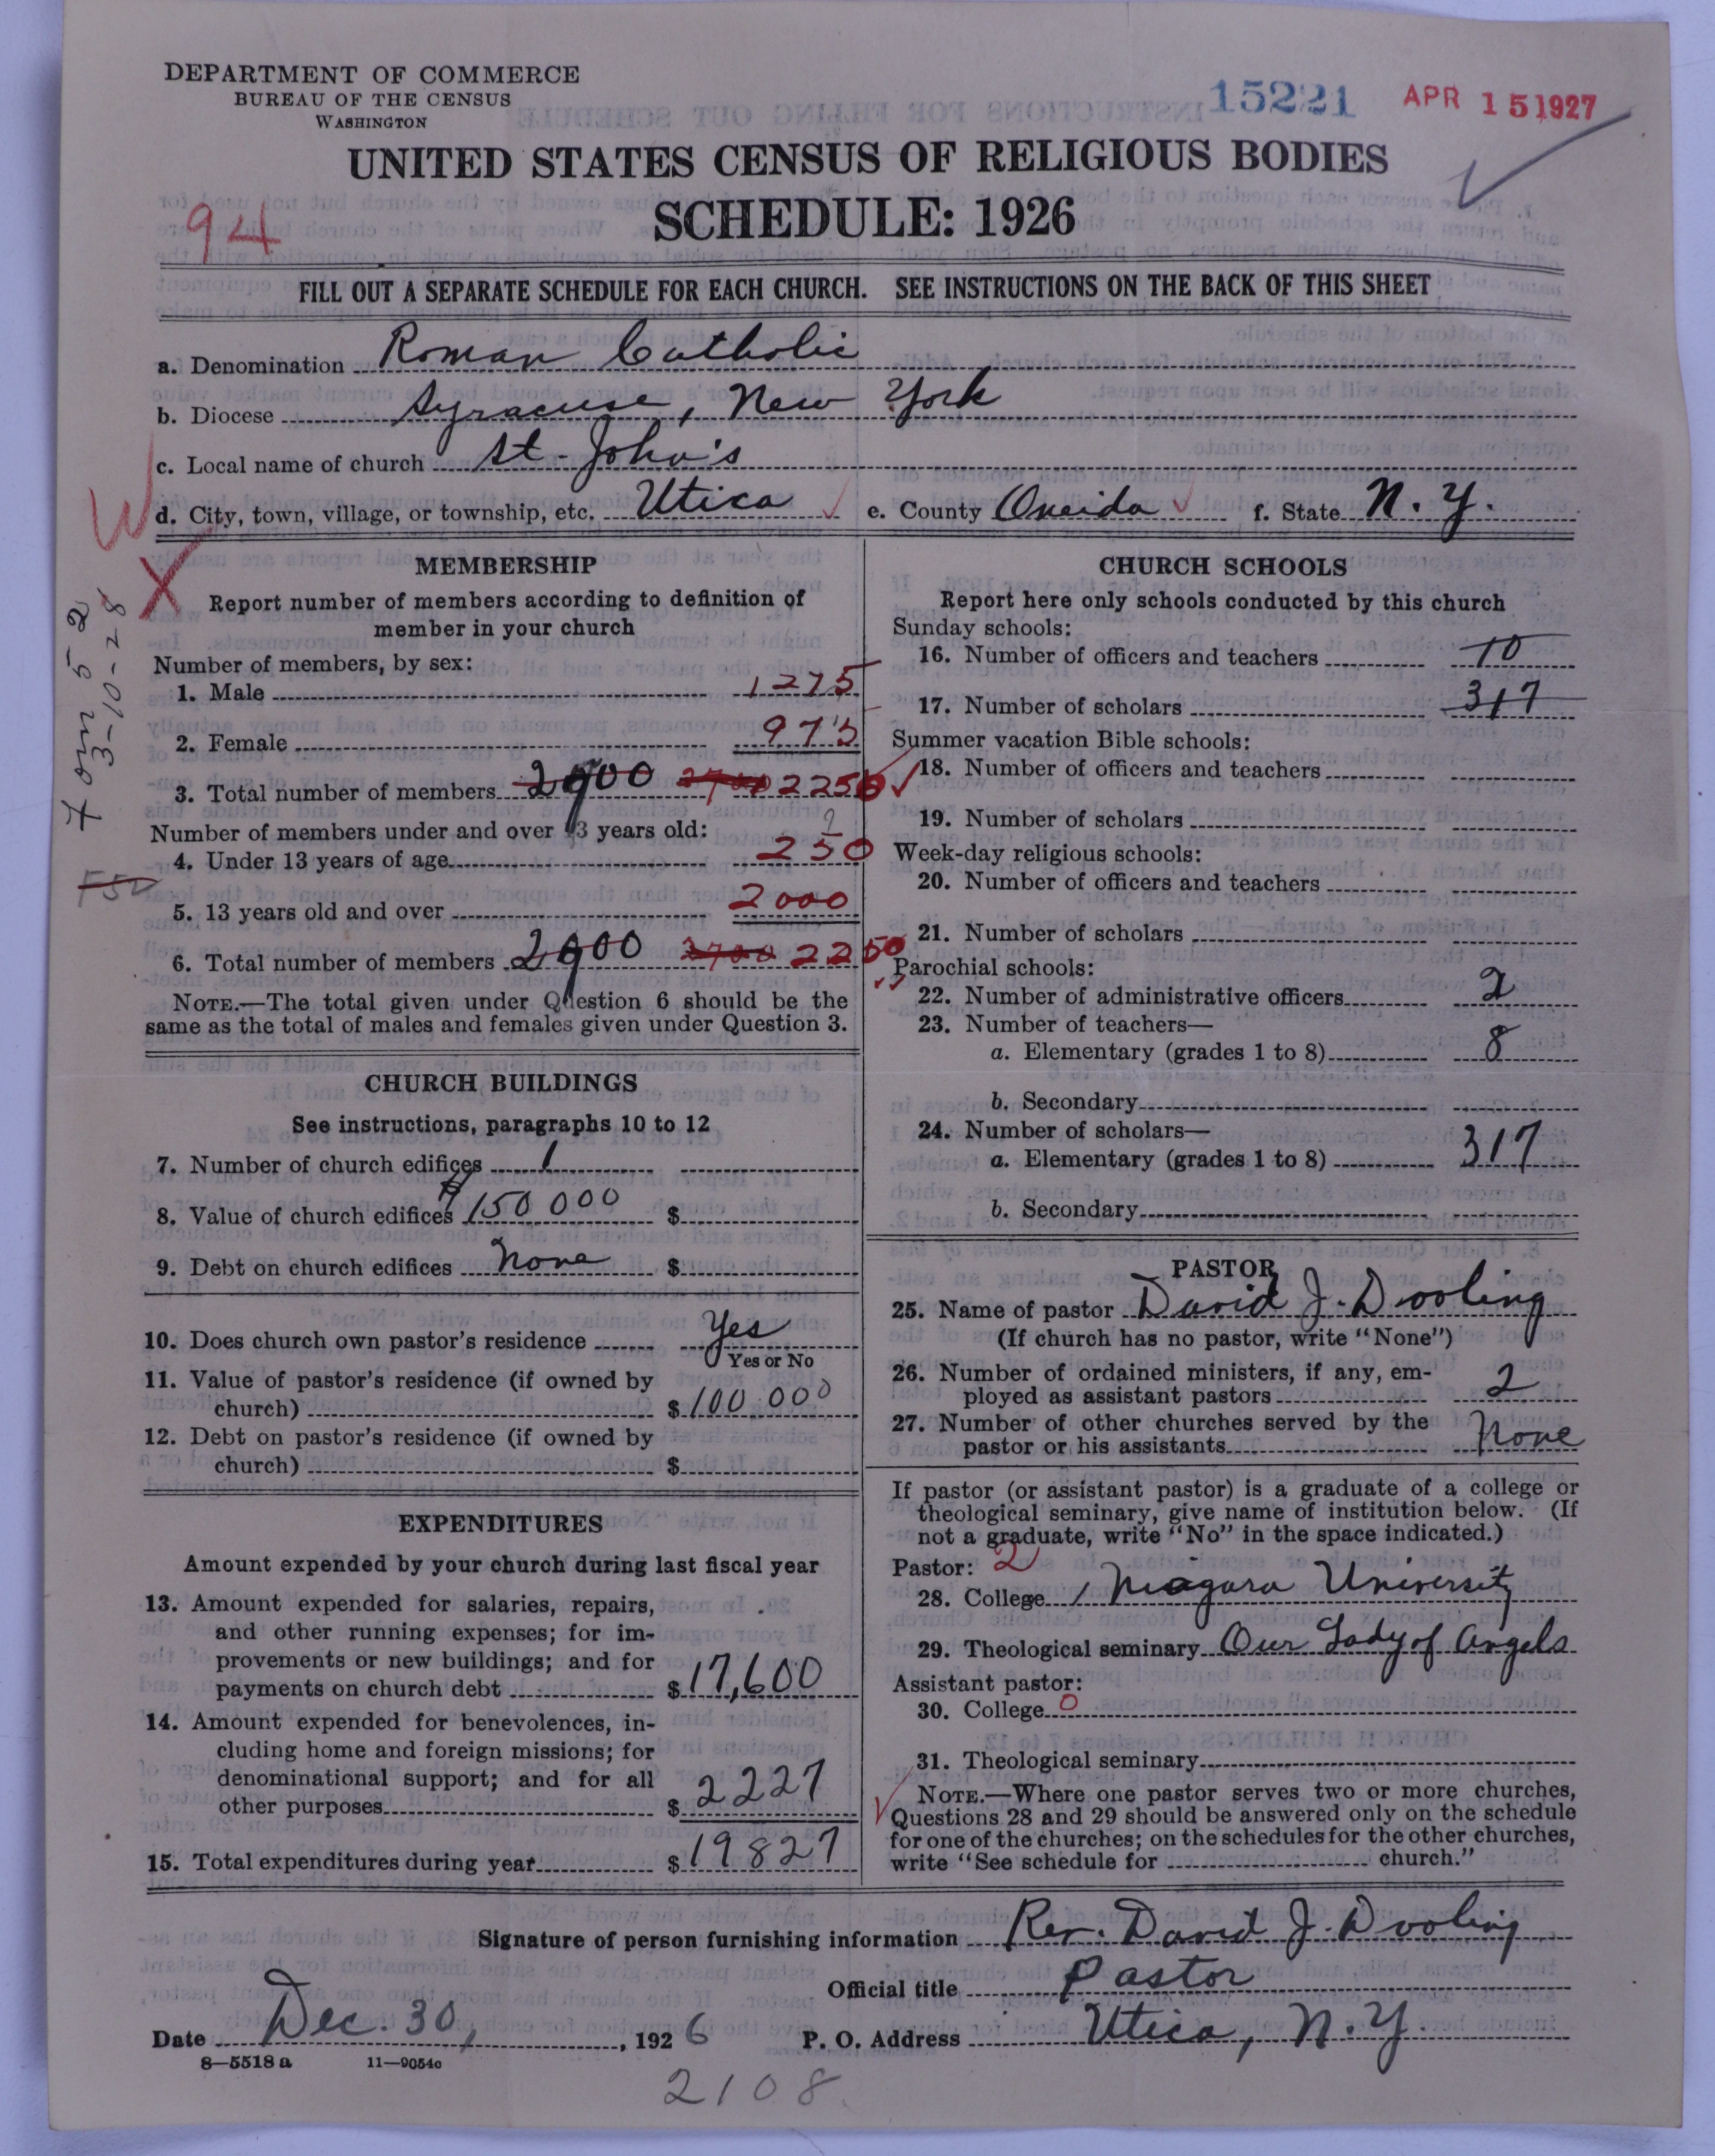 DEPARTMENT OF COMMERCE
BUREAU OF THE CENSUS
WASHINGTON
15221 APR 15 1927
UNITED STATES CENSUS OF RELIGIOUS BODIES
SCHEDULE: 1926
94
FILL OUT A SEPARATE SCHEDULE FOR EACH CHURCH. SEE INSTRUCTIONS ON THE BACK OF THIS SHEET
a. Denomination Roman Catholic
b. Diocese Syracuse, New York
c. Local name of church St. John's
d. City, town, village, or township, etc. Utica e. County Oneida f. State N.Y.
W
X
3-10-28
550
MEMBERSHIP
Report number of members according to definition of
member in your church
Number of members, by sex:
1. Male 1275
2. Female 975
3. Total number of members 2900 2700 2250
Number of members under and over 13 years old:
4. Under 13 years of age 250
5. 13 years old and over 2000
6. Total number of members 2900 2700 2250
NOTE.—The total given under Question 6 should be the
same as the total of males and females given under Question 3.
CHURCH BUILDINGS
See instructions, paragraphs 10 to 12
7. Number of church edifices 1
8. Value of church edifices $150000 $
9. Debt on church edifices None $
10. Does church own pastor's residence Yes
Yes or No
11. Value of pastor's residence (if owned by
church) $ 100.000
12. Debt on pastor's residence (if owned by
church) $
EXPENDITURES
Amount expended by your church during last fiscal year
13. Amount expended for salaries, repairs,
and other running expenses; for im-
provements or new buildings; and for
payments on church debt $ 17,600
14. Amount expended for benevolences, in-
cluding home and foreign missions; for
denominational support; and for all
other purposes $ 2227
15. Total expenditures during year $ 19827
CHURCH SCHOOLS
Report here only schools conducted by this church
Sunday schools:
16. Number of officers and teachers 10
17. Number of scholars 317
Summer vacation Bible schools:
18. Number of officers and teachers
19. Number of scholars
Week-day religious schools:
20. Number of officers and teachers
21. Number of scholars
Parochial schools:
22. Number of administrative officers 2
23. Number of teachers—
a. Elementary (grades 1 to 8) 8
b. Secondary
24. Number of scholars—
a. Elementary (grades 1 to 8) 317
b. Secondary
PASTOR
25. Name of pastor David J. Dooling
(If church has no pastor, write "None")
26. Number of ordained ministers, if any, em-
ployed as assistant pastors 2
27. Number of other churches served by the
pastor or his assistants None
If pastor (or assistant pastor) is a graduate of a college or
theological seminary, give name of institution below. (If
not a graduate, write "No" in the space indicated.)
Pastor: 2
28. College Niagara University
29. Theological seminary Our Lady of Angels
Assistant pastor:
30. College 0
31. Theological seminary
NOTE.—Where one pastor serves two or more churches,
Questions 28 and 29 should be answered only on the schedule
for one of the churches; on the schedules for the other churches,
write "See schedule for church."
Signature of person furnishing information Rev. David J. Dooling
Official title Pastor
Date Dec. 30, 1926 P. O. Address Utica, N.Y.
8—5518 a 11—9054c
2108